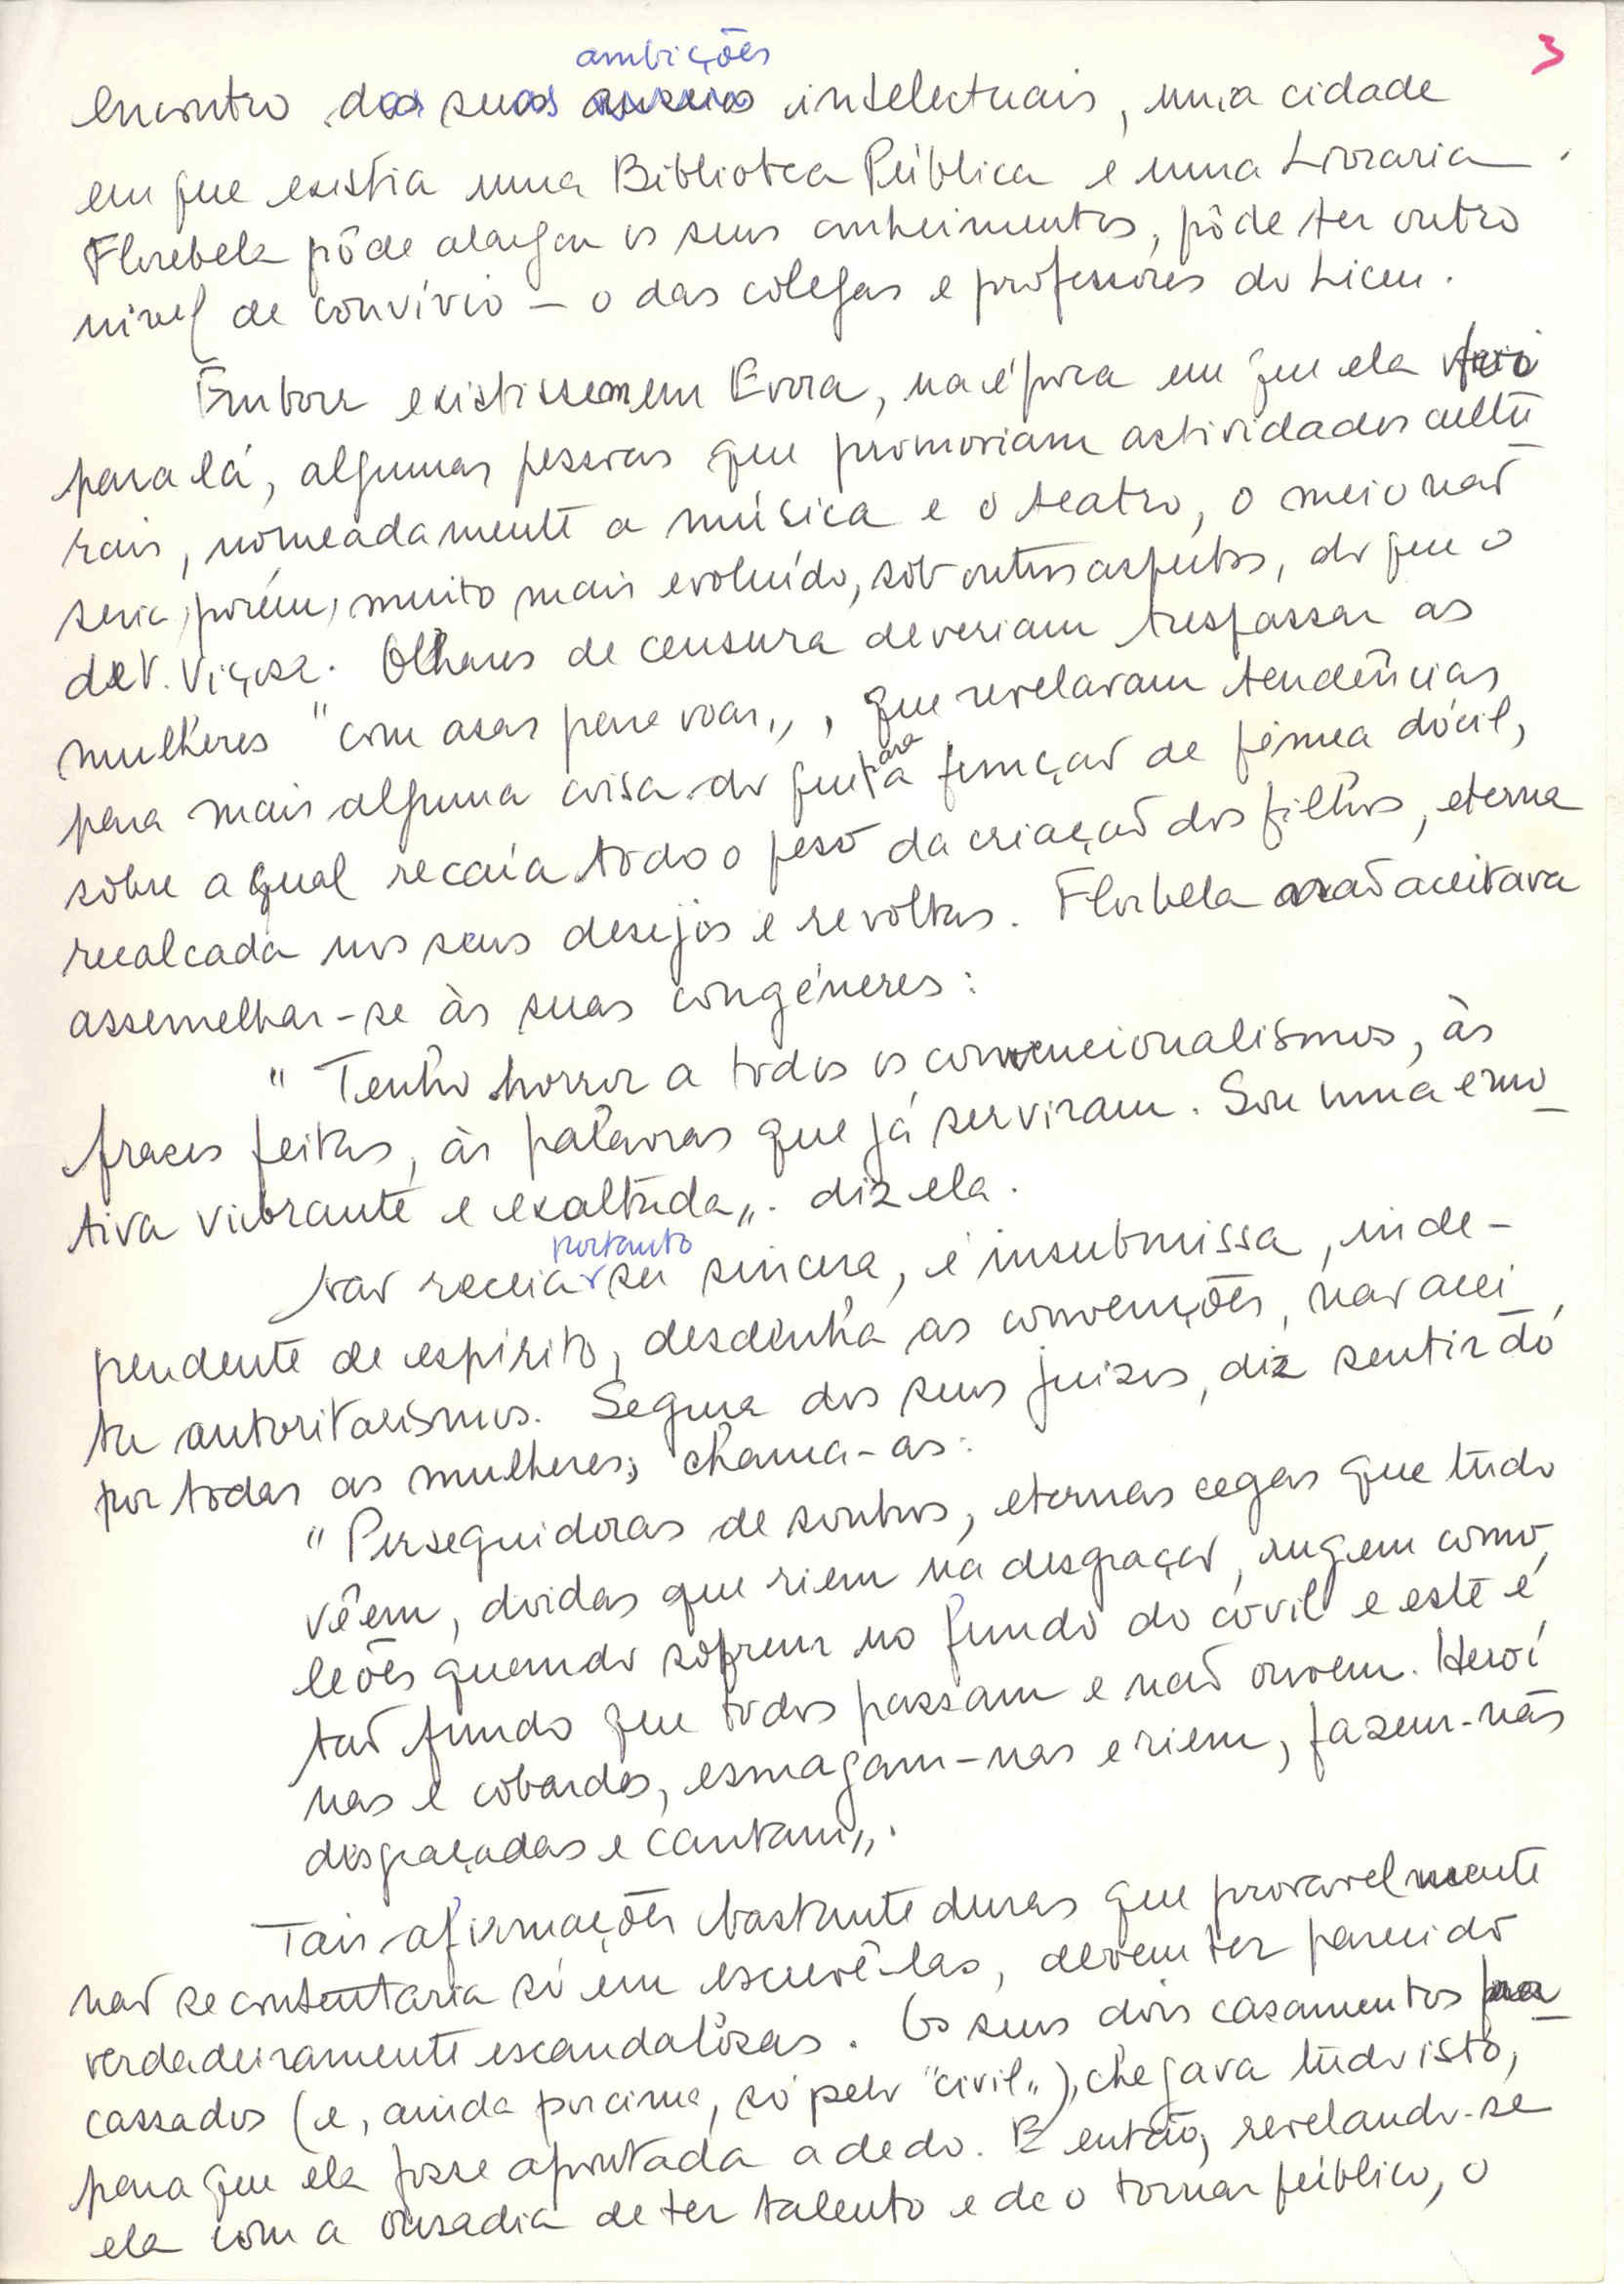 3
ambições
encontro das suas anseios intelectuais, numa cidade
em que existia uma Biblioteca Pública e uma Livraria.
Florebela pôde alargar os seus conhecimentos, pôde ter outro
nível de convívio – o das colegas e professores do Liceu.
Embora existissem em Evora, na época em que ela foi
para lá, algumas pessoas que promoviam actividades cultu
rais, nomeadamente a música e o teatro, o meio não
seria, porém, muito mais evoluído, sob outros aspectos, do que o
de V. Viçosa. Olhares de censura deveriam trespassar as
mulheres "com asas para voar„, que revelavam tendências
para mais alguma coisa do que para a função de fêmea dócil,
sobre a qual recaía todo o peso da criação dos filhos, eterna
recalcada nos seus desejos e revoltas. Florbela não aceitava
assemelhar-se às suas congéneres:
"Tenho horror a todos os convencionalismos, às
frases feitas, às palavras que já serviram. Sou uma emo
tiva vibrante e exaltada„. diz ela.
portanto
Não receia ser sincera, é insubmissa, inde-
pendente de espírito, desdenha as convenções, não acei
ta autoritarismos. Segura dos seus juizos, diz sentir dó
por todas as mulheres; chama-as:
"Perseguidoras de sonhos, eternas cegas que tudo
vêem, doidas que riem na desgraça, rugem como
leões quando sofrem no fundo do covil e este é
tão fundo que todos passam e não ouvem. Heroí
nas e cobardes, esmagam-nas e riem, fazem-nas
desgraçadas e cantam„.
Tais afirmações bastante duras que provavelmente
não se contentaria só em escrevê-las, devem ter parecido
verdadeiramente escandalosas. Os seus dois casamentos fra
cassados (e, ainda por cima, só pelo "civil„), chegava tudo isto,
para que ela fosse apontada a dedo. E então, revelando-se
ela com a ousadia de ter talento e de o tornar público, o